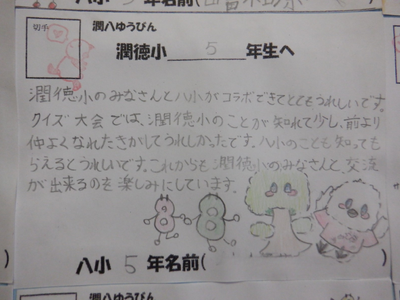 八小 5 年名前
切手
潤八ゆうびん
潤徳小 5 年生へ
潤徳小のみなさんと八小がコラボできてとてもうれしいです。
クイズ大会では、潤徳小のことが知れて少し、前より
仲よくなれたきがしてうれしかったです。八小のことも知っても
らえるとうれしいです。これからも潤徳小のみなさんと、交流
が出来るのを楽しみにしています。
八小 5 年名前(
)
潤八ゆうびん